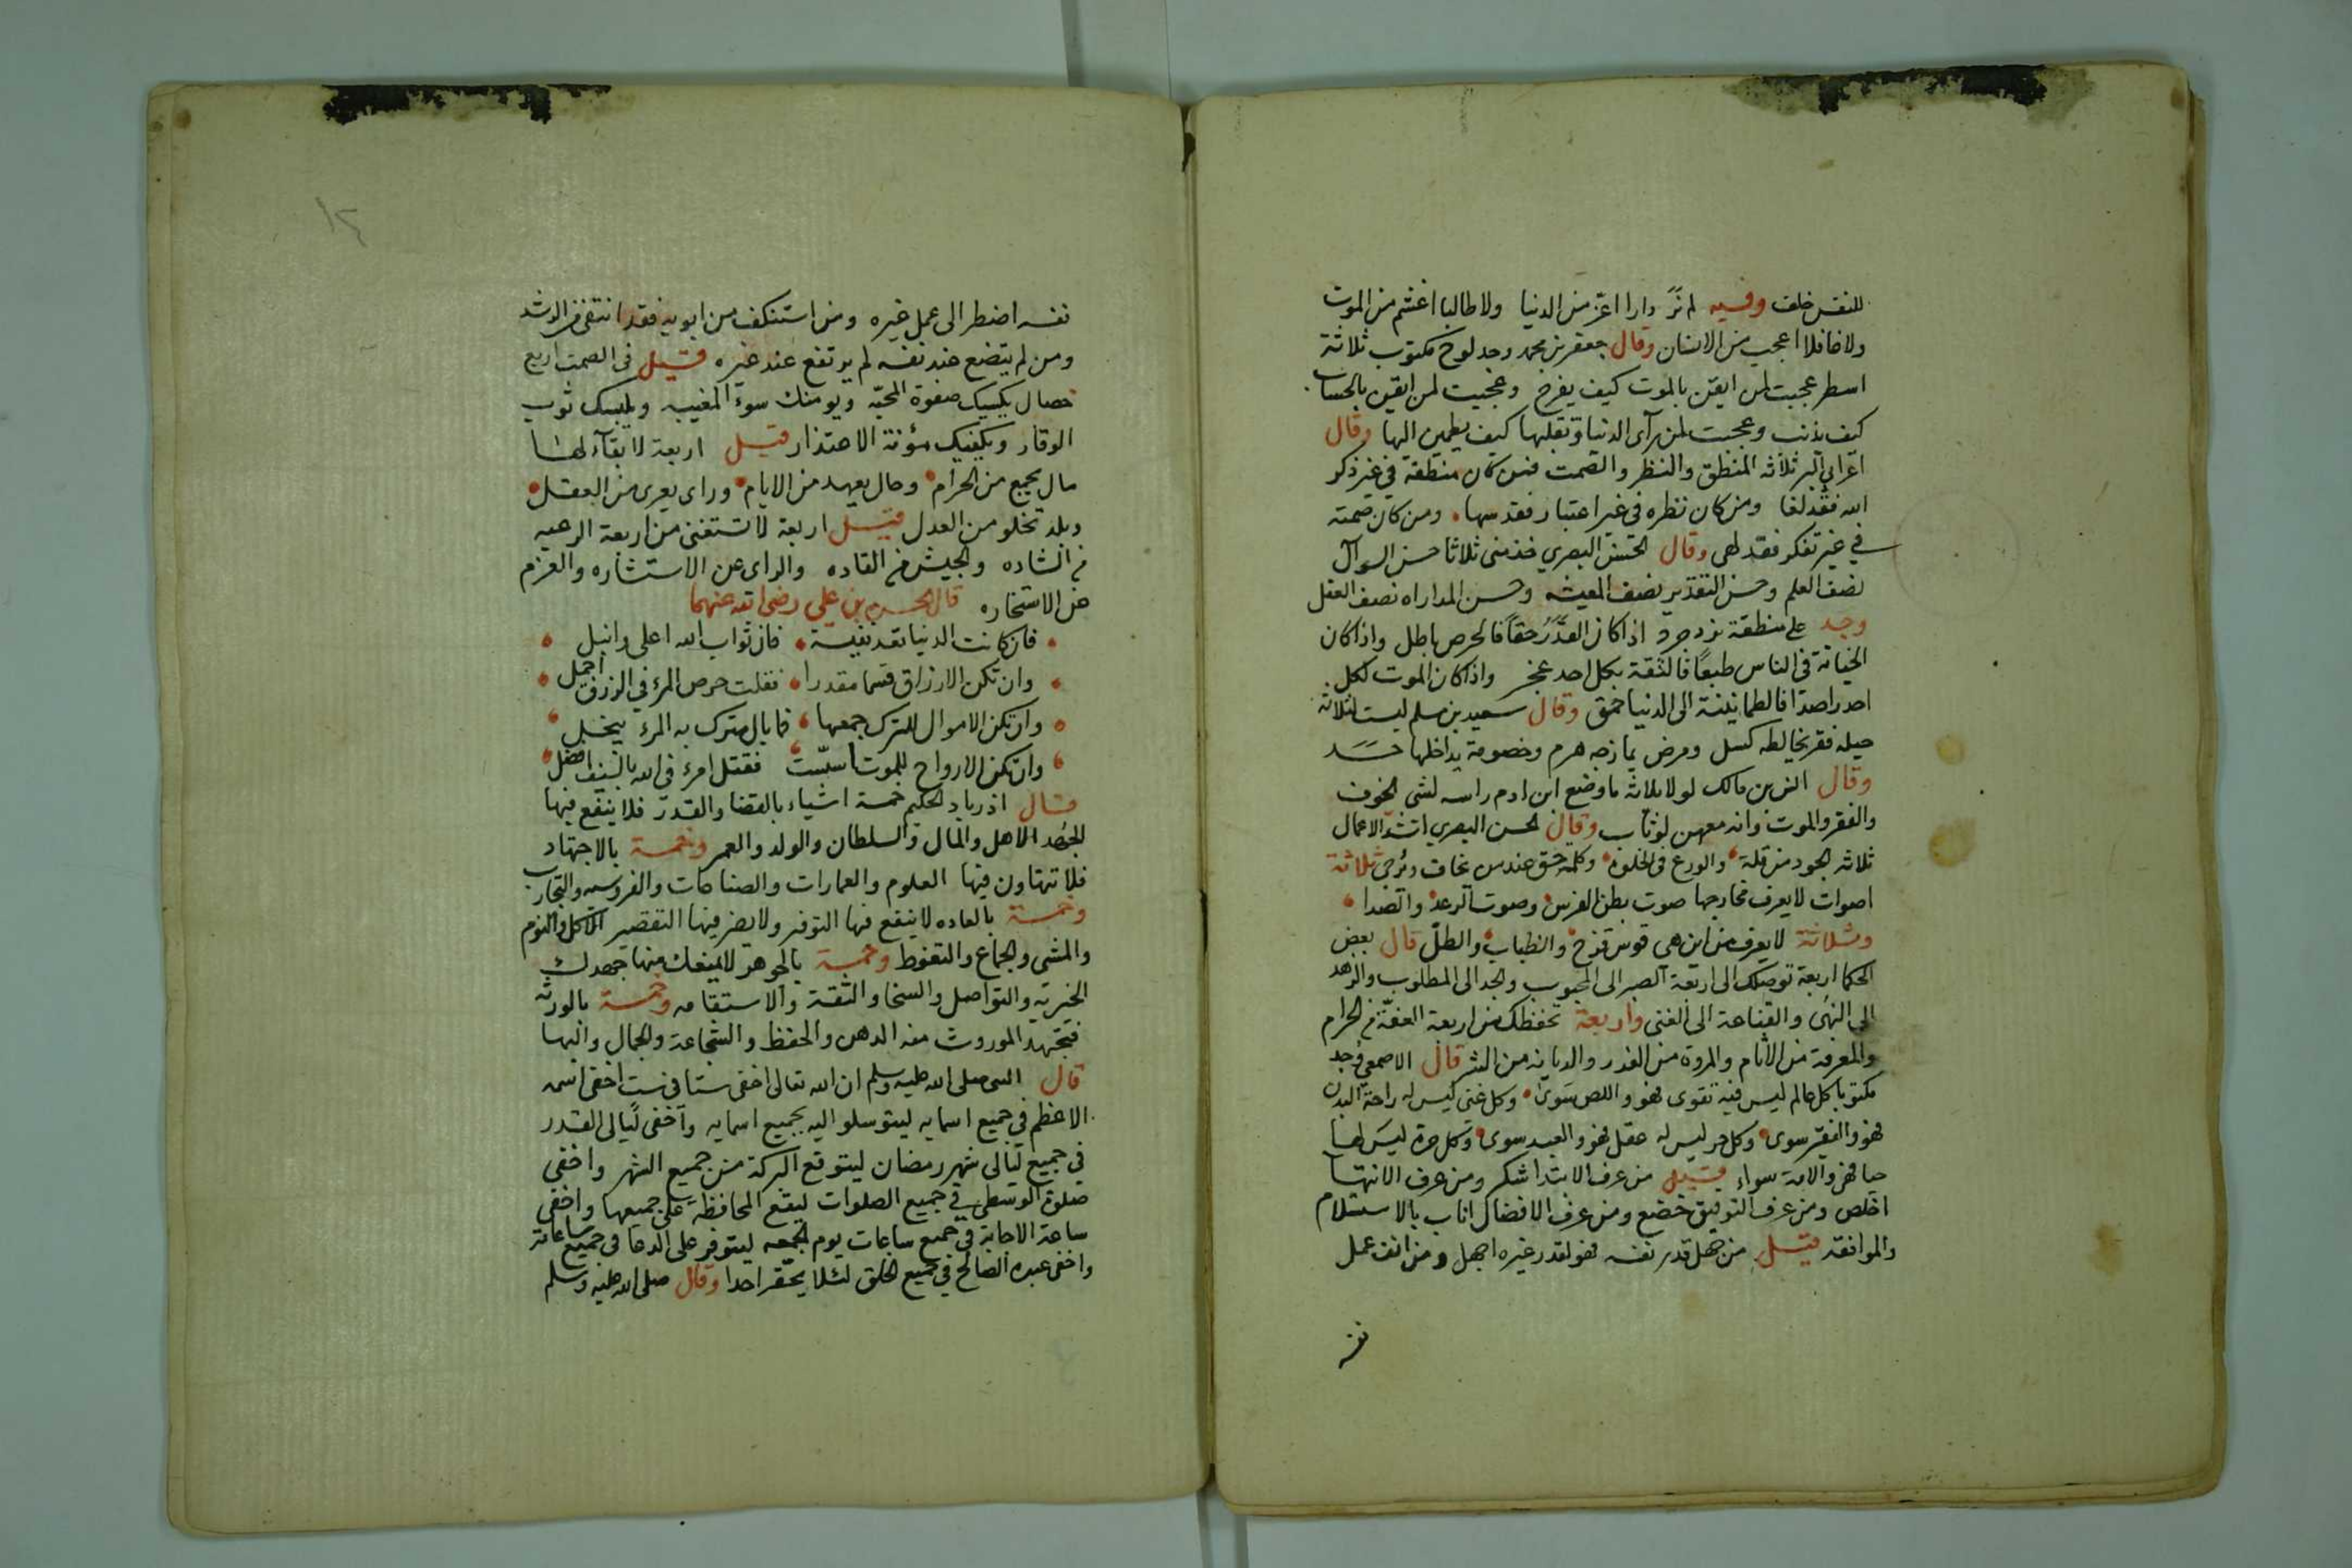 للنفس خلف وفيه لم نر دارا اغر من الدنيا ولا طالبا اغشم من الموت
ولا غافلا اعجب من الانسان وقال جعفر بن محمد وجد لوح مكتوب ثلاثة
اسطر عجبت لمن ايقن بالموت كيف يفرح وعجبت لمن ايقن بالحساب
كيف يذنب وعجبت لمن رآى الدنيا وتقلبها كيف يطمين اليها وقال
اعرابي البر ثلاثه المنطق والنظر والصمت فمن كان منطقه في غير ذكر
الله فقد لغا ومن كان نظره في غير اعتبار فقد سها ومن كان صمته
في غير تفكر فقد لهى وقال الحسن البصري خذ مني ثلاثا حسن السوآل
نصف العلم وحسن التقدير نصف المعيشه وحسن المداراه نصف العقل
وجد على منطقة بزدجرد اذا كان القدر حقا فالحرص باطل واذا كان
الخيانة في الناس طبعا فالثقة بكل احد عجز واذا كان الموت لكل
احد راصدا فالطمانينة الى الدنيا حمق وقال سعيد بن مسلم ليست لثلاثة
حيله فقر يخالطه كسل ومرض يمازجه هرم وخصومة يداخلها حسد
وقال انس بن مالك لولا ثلاثه ما وضع ابن ادم راسه لشى الخوف
والفقر والموت وانه معهن لوثاب وقال الحسن البصري اشد الاعمال
ثلاثه الجود من قلة والورع في الخلوة وكلمة حق عند من يخاف ويرجى ثلاثة
اصوات لا يعرف مخارجها صوت بطن الفرس وصوت الرعد والصدا
وثلاثة لا يعرف من اين هي قوس قزح والضباب والطل قال بعض
الحكما اربعة توصلك الى اربعة الصبر الى المحبوب والجد الى المطلوب والزهد
الى النهى والقناعة الى الغنى واربعة تحفظك من اربعة العفة من الحرام
والمعرفة من الاثام والمروة من الغدر والديانه من الشر قال الاصمعي وجد
مكتوبا كل عالم ليس فيه تقوى فهو واللص سوى وكل غني ليس له راحة البدن
فهو والفقير سوى وكل حر ليس له عقل فهو والعبد سوى وكل حرة ليس لها
حيا فهي والامة سواء قيل من عرف الابتدا شكر ومن عرف الانتها
اخلص ومن عرف التوفيق خضع ومن عرف الافضال اناب بالاستسلام
والموافقه قيل من جهل قدر نفسه فهو لقدر غيره اجهل ومن انف عمل
نفسه
١٢
نفسه اضطر الى عمل غيره ومن استنكف من ابويه فقد انتفى من الرشد
ومن لم يتضع عند نفسه لم يرتفع عند غيره قيل في الصمت اربع
خصال يكسبك صفوة المحبه ويومنك سوء المغيبه ويلبسك ثوب
الوقار ويكفيك مؤنة الاعتذار قيل اربعة لا بقآء لها
مال يجمع من الحرام وحال يعهد من الايام وراى يعرى من العقل
وبلد تخلو من العدل قيل اربعة لا تستغنى من اربعة الرعيه
من الساده والجيش من القاده والراى عن الاستشاره والعزم
عن الاستخاره قال الحسين بن علي رضى الله عنهما
فان كانت الدنيا تعد نفيسة فان ثواب الله اعلى وانبل
وان تكن الارزاق قسما مقدرا فقلت حرص المرء في الرزق اجمل
وان تكن الاموال للترك جمعها فما بال متروك به المرء يبخل
وان تكن الارواح للموت اسست فقتل امرء في الله بالسيف افضل
قال اذرباد الحكيم خمسة اشياء بالقضا والقدر فلا ينفع فيها
الجهد الاهل والمال والسلطان والولد والعمر وخمسة بالاجتهاد
فلا تتهاون فيها العلوم والعمارات والصناعات والفروسيه والتجارب
وخمسة بالعاده لا ينفع فيها التوفر ولا يضر فيها التقصير الاكل والنوم
والمشى والجماع والتغوط وخمسة بالجوهر لا ينفك منها جهدك
الخيريه والتواصل والسخا والثقة والاستقامه وخمسة بالورثه
فتجتهد الموروث منه الذهن والحفظ والشجاعة والجمال والبها
قال النبي صلى الله عليه وسلم ان الله تعالى اخفى ستا في ست اخفى اسمه
الاعظم في جميع اسمايه ليتوسلو اليه بجميع اسمايه وآخفى ليالى القدر
في جميع ليالى شهر رمضان ليتوقع البركة من جميع الشهر واخفى
صلوة الوسطى في جميع الصلوات ليقع المحافظة على جميعها واخفى
ساعة الاجابة في جميع ساعات يوم الجمعه ليتوفر على الدعا في جميع ساعاته
واخفى عبده الصالح في جميع الخلق لئلا يحقر احدا وقال صلى الله عليه وسلم